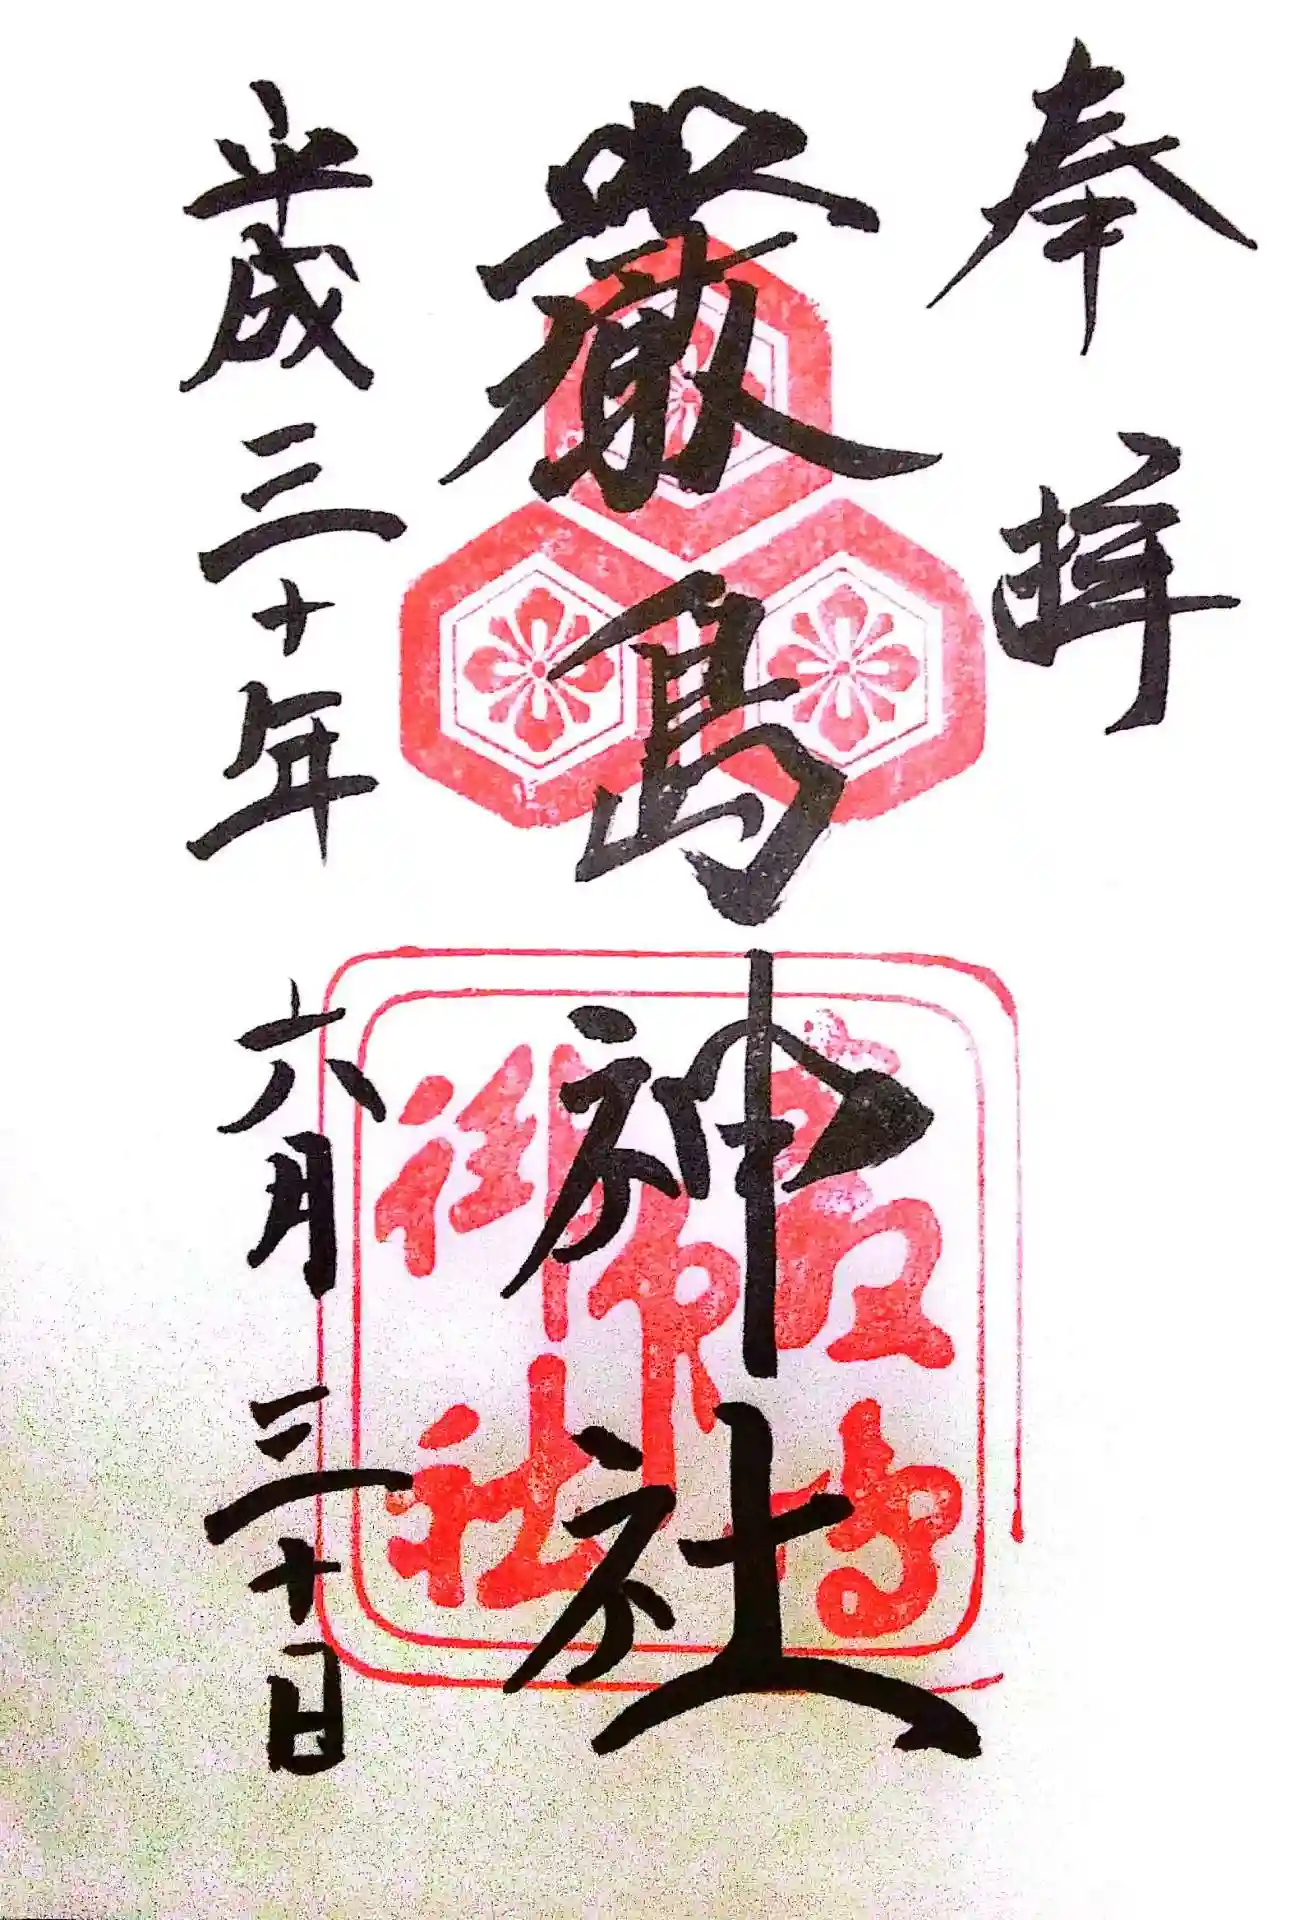 奉拝
嚴島神社
平成三十年六月三十日